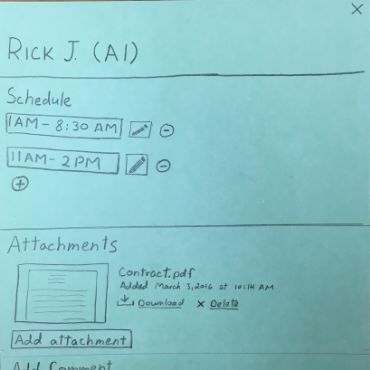 Rick J. (A1)
Schedule
1AM - 8:30 AM
11AM - 2PM
Attachments
Contract.pdf
Added March 3, 2016 at 10:14 AM
Download x Delete
Add attachment
Add Comment